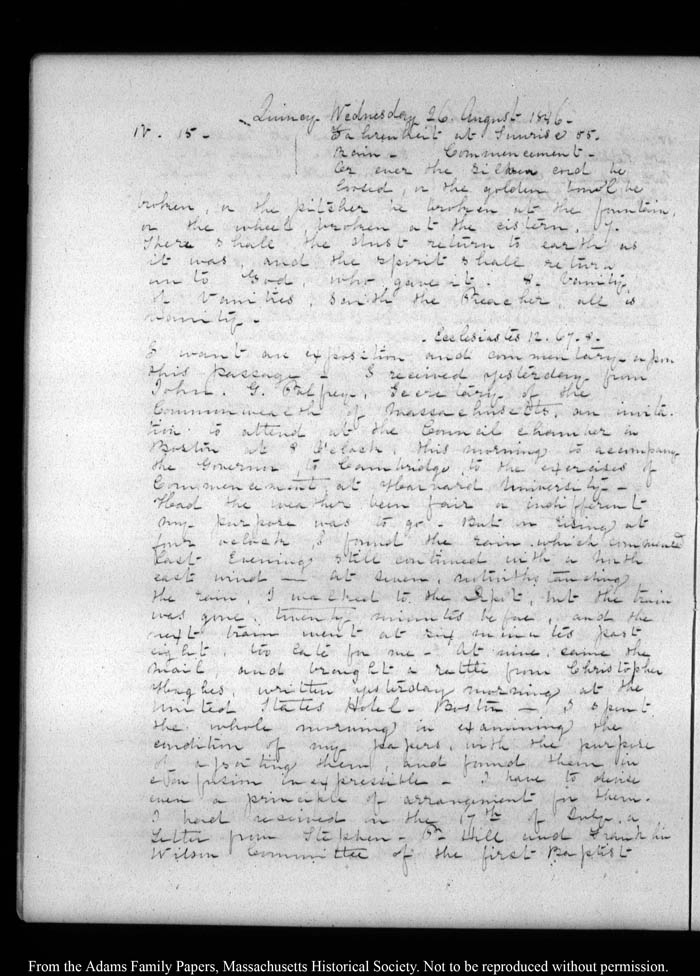 Quincy Wednesday 26. August 1846.
IV. 15. Fahrenheit at Sunrise 55.
Rain - Commencement -
Or ever the silver cord be
loosed, or the golden bowl be
broken, or the pitcher be broken at the fountain,
or the wheel broken at the cistern. 7.
There shall the dust return to earth as
it was, and the spirit shall return
unto God, who gave it. 8. Vanity
of Vanities, saith the Preacher, all is
vanity -
- Ecclesiastes 12. 67.8.
I want an exposition and commentary upon
this passage - I received yesterday from
John. G. Palfrey, Secretary of the
Commonwealth of Massachusetts, an invita
tion to attend at the Council chamber in
Boston at 8 O'clock, this morning to accompany
the Governor, to Cambridge, to the exercises of
Commencement at Harvard University -
Had the weather been fair or indifferent
my purpose was to go - But on rising at
four o'clock, I found the rain which commenced
last Evening still continued with a north
east wind - At seven, notwithstanding
the rain, I walked to the Depot, but the train
was gone, twenty minutes before, and the
next train went at six minutes past
eight, too late for me - At nine, came the
mail, and brought a rattle from Christopher
Hughes, written yesterday morning at the
United States Hotel - Boston - I spent
the whole morning in examining the
condition of my papers, with the purpose
of assorting them, and found them in
confusion inexpressible - I have to devise
even a principle of arrangement for them.
I had received on the 17th of July, a
Letter from Stephen P. Hill and Franklin
Wilson Committee of the first Baptist
From the Adams Family Papers, Massachusetts Historical Society. Not to be reproduced without permission.